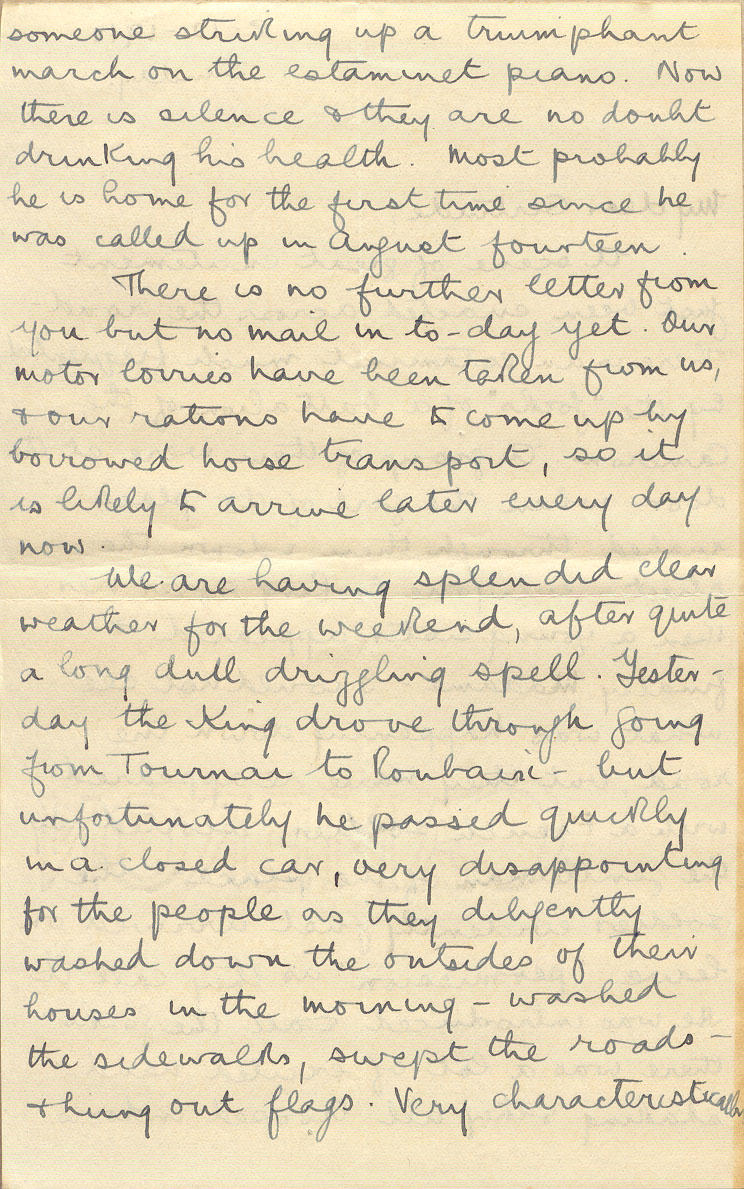 someone striking up a triumphant
march on the estaminet piano. Now
there is silence & they are no doubt
drinking his health. Most probably
he is home for the first time since he
was called up in August fourteen.
There is no further letter from
you but no mail in to-day yet. Our
motor lorries have been taken from us,
& our rations have to come up by
borrowed horse transport, so it
is likely to arrive later every day
now.
We are having splendid clear
weather for the weekend, after quite
a long dull drizzling spell. Yester-
day the King drove through going
from Tournai to Roubaix - but
unfortunately he passed quickly
in a closed car, very disappointing
for the people as they diligently
washed down the outsides of their
houses in the morning - washed
the sidewalks, swept the roads -
& hung out flags. Very characteristically